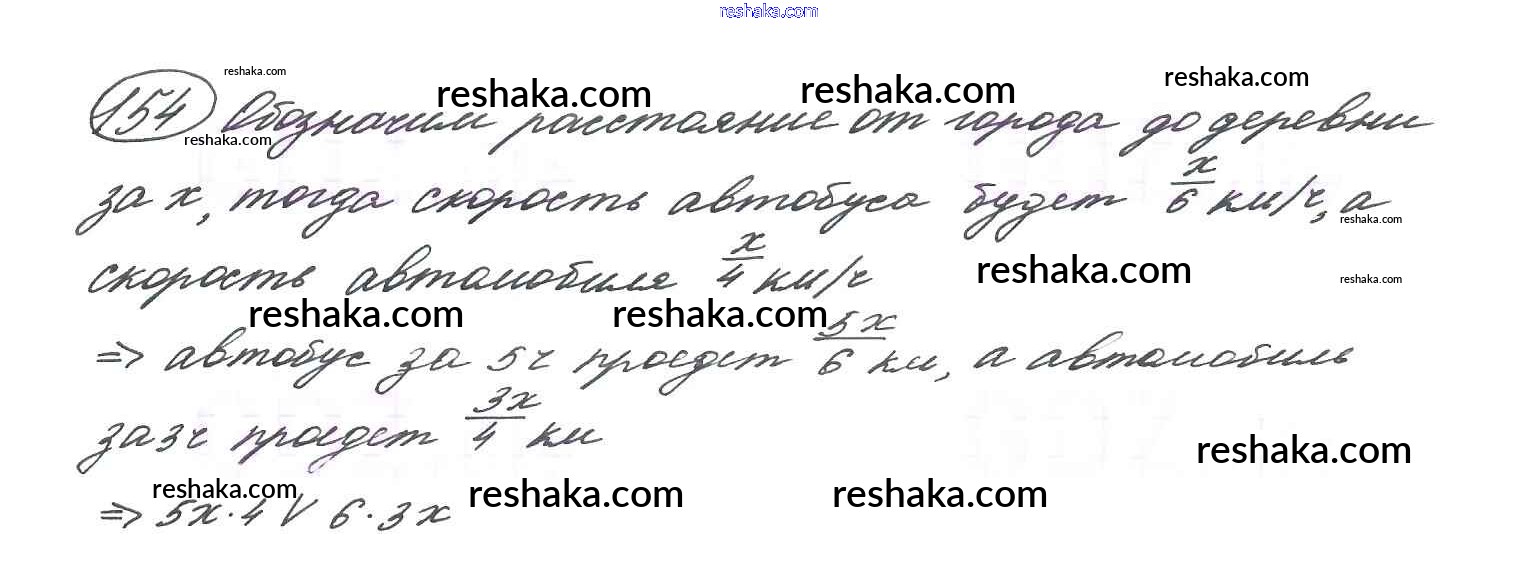 reshaka.com
reshaka.com
reshaka.com reshaka.com reshaka.com
154 Обозначим расстояние от города до деревни
reshaka.com
за x, тогда скорость автобуса будет x/6 км/ч, а
reshaka.com
скорость автомобиля x/4 км/ч
reshaka.com reshaka.com
reshaka.com reshaka.com
=> автобус за 5 ч проедет 5x/6 км, а автомобиль
за 3 ч проедет 3x/4 км
reshaka.com
reshaka.com reshaka.com reshaka.com
=> 5x·4 V 6·3x